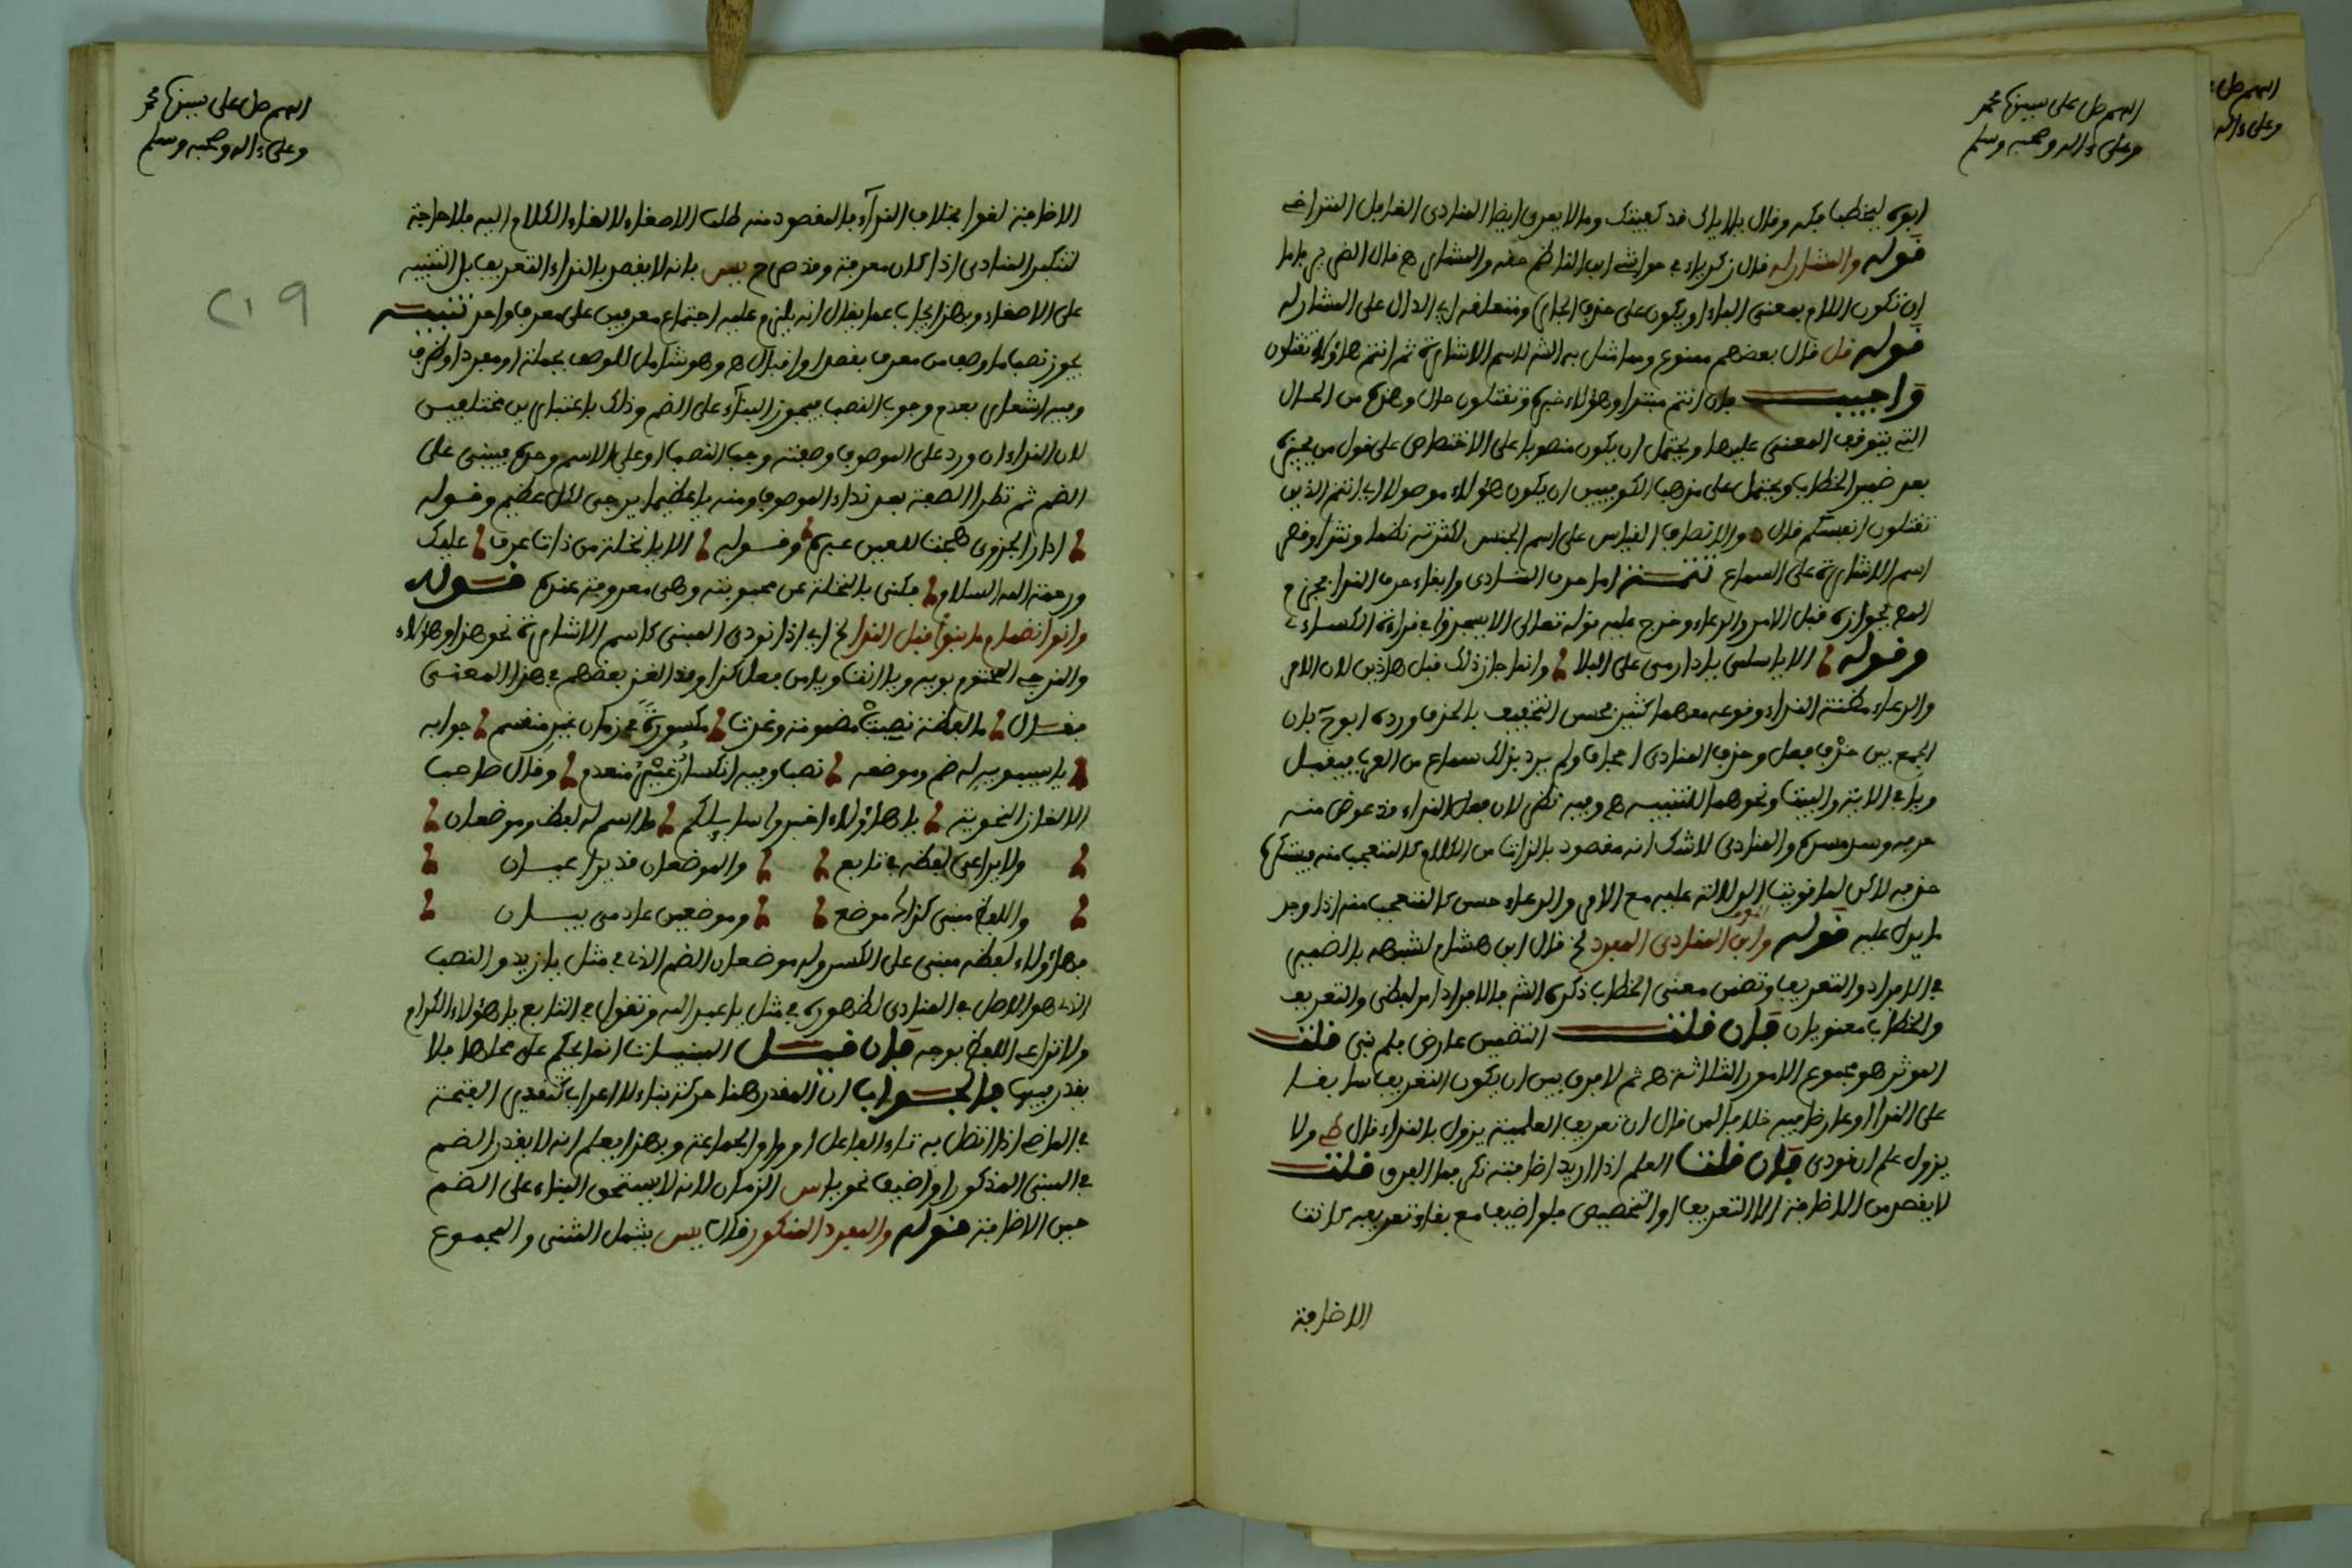 اللهم صل على سيدنا محمد
وعلى ءاله وصحبه وسلم
قوله والمشار له قال زكرياء في حواشي ابن الناظم حقه والمشار
ان تكون اللام بمعنى الباء او يكون على حذف الجار ومتعلقه اي الدال على المشار له
قوله قل قال بعضهم ممنوع وما مثل به الش لاسم الاشارة ثم انتم هؤلاء تقتلون
واجيب بان انتم مبتدا وهؤلاء خبره وتقتلون حال وهذه من الحال
التي يتوقف المعنى عليها ويحتمل ان يكون منصوبا على الاختصاص على قول من يجيزه
بعد ضمير الخطاب ويحتمل على مذهب الكوفيين ان يكون هؤلاء موصولا اي انتم الذين
تقتلون انفسكم قال والانصاف القياس على اسم الجنس لكثرته نظما ونثرا وقصر
اسم الاشارة على السماع تتمة اما حذف المنادى وابقاء حرف النداء فجزم
المص بجوازه قبل الامر والدعاء وخرج عليه قوله تعالى الا يسجدوا في قراءة الكسائي
وقوله الا يا سلمى يا دار مي على البلا وانما جاز ذلك قبل هاذين لان الامر
والدعاء مظنة النداء ووقوعه معهما كثير فحسن التخفيف بالحذف ورده ابو ح بان
الجمع بين حذف فعل وحذف المنادى اجحاف ولم يرد بذلك سماع من العرب فيقبل
ويا في الاية والبيت ونحوهما للتنبيه هـ وفيه نظر لان فعل النداء قد عوض منه
حرفه وسد مسده والمنادى لا شك انه مقصود بالذات من الكلام كالمتعجب منه
حذفه لاكن لما قويت الدلالة عليه مع الامر والدعاء حسن كالمتعجب منه اذا وجد
ما يدل عليه قوله وابن المنادى المفرد لخ قال ابن هشام لشبهه بالضمير
في الافراد والتعريف وتضمن معنى الخطاب ذكره الش فالافراد امر لفظي والتعريف
والخطاب معنويان فان قلت التضمن عارض فلم بني قلت
الموثر هو مجموع الامور الثلاثة هـ ثم لا فرق بين ان يكون التعريف سابقا
على النداء او عارضا فيه خلافا لمن قال ان تعريف العلمية يزول بالنداء قال ولا
يزول علم ان نودي فان قلت العلم اذا اريد اضافته نكر فما الفرق قلت
لا يقصد من الاضافة الا التعريف او التخصيص فلو اضيف مع بقاء تعريفه كانت
الاضافة
اللهم صل على سيدنا محمد
وعلى ءاله وصحبه وسلم
219
الاضافة لغوا بخلاف النداء فالمقصود منه طلب الاصغاء لالقاء الكلام اليه فلا حاجة
لتنكير المنادى اذا كان معرفة وقد صرح يس بانه لا يقصد بالنداء التعريف بل التنبيه
على الاصغاء وبهذا يجاب عما يقال انه يلزم عليه اجتماع معرفين على معرف واحد تنبيه
يجوز نصب ما وصف من معرف بقصد او اقبال هـ وهو شامل للوصف بجملة او مفرد او ظرف
وفيه اشعار بعدم وجوب النصب فيجوز البناء على الضم وذلك باعتبارين مختلفين
لان النداء ان ورد على الموصوف وصفته وجب النصب او على الاسم وحده فيبنى على
الضم ثم تطرا الصفة بعد نداء الموصوف ومنه يا عظيما يرجى لكل عظيم وقوله
ادارا بحزوى هجت للعين عبرة وقوله الا يا نخلة من ذات عرق عليك
ورحمة الله السلام فكنى بالنخلة عن محبوبته وهي معروفة عنده قوله
وانو انضمام ما بنوا قبل الندا لخ اي اذا نودي المبني كاسم الاشارة نحو هذا وهؤلاء
والمزجي المختوم بويه ويا انت ويا من فعل كذا وقد الغز بعضهم في هذا المعنى
فقال ما لفظة نصبت مضمومة وغدت مكسورة في زمان غير منقسم جوابه
يا سيبويه له ضم وموضعه نصب وفيه انكسار غير منعدم وقال صاحب
الالغاز النحوية يا هاؤلاء اخبروا سايلكم ما اسم له لفظ وموضعان
ولا يراعى لفظه في تابع والموضعان قد يراعيان
واللفظ مبني كذاك موضع وموضعين عادمي بيان
فهؤلاء لفظه مبني على الكسر وله موضعان الضم الذي في مثل يا زيد والنصب
الذي هو الاصل في المنادى لظهوره في مثل يا عبد الله وتقول في التابع يا هؤلاء الكرام
ولا تراعي اللفظ بوجه فان قيل المبنيات انما يحكم على محلها فلا
يقدر فيها فالجواب ان المقدر هنا حركة بناء لا اعراب كتقدير الفتحة
في الماضي اذا اتصل به تاء الفاعل او واو الجماعة وبهذا يعلم انه لا يقدر الضم
في المبني المذكور اذا اضيف نحو يا من الزمان لانه لا يستحق البناء على الضم
حين الاضافة قوله والمفرد المنكور قال يس يشمل المثنى والمجموع